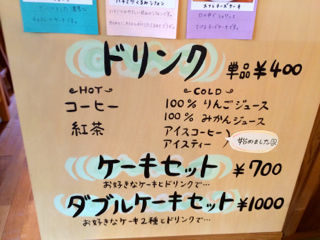 ドリンク 単品 ¥400
HOT
コーヒー
紅茶
COLD
100% りんごジュース
100% みかんジュース
アイスコーヒー
アイスティー
始めました
ケーキセット ¥700
お好きなケーキとドリンクで…
ダブルケーキセット ¥1000
お好きなケーキ2種とドリンクで…